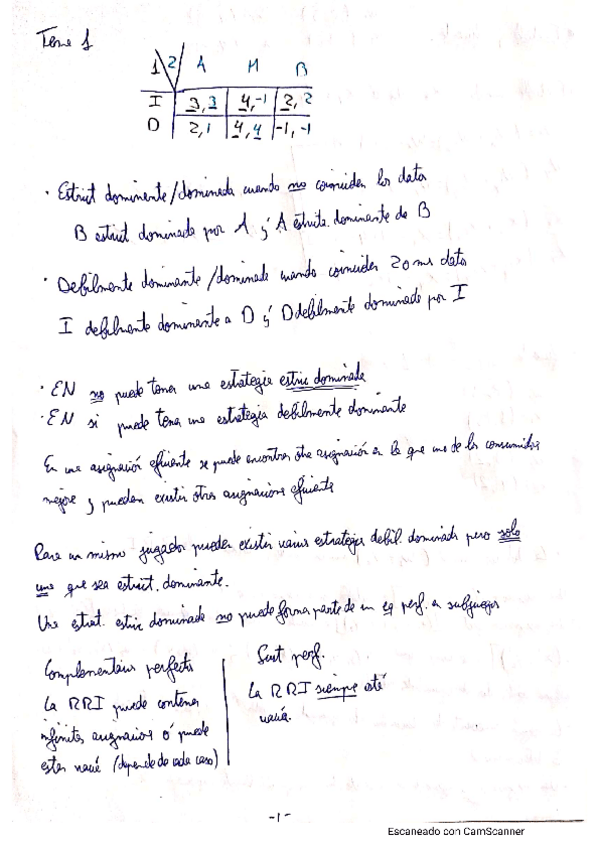 Tema 1
1 2 A M B
I 3,3 4,-1 2,2
D 2,1 4,4 -1,-1
· Estrict dominante/dominada cuando no coinciden los datos
B estrict dominada por A y A estrict. dominante de B
· Debilmente dominante/dominada cuando coinciden 2 o más datos
I debilmente dominante a D y D debilmente dominada por I
· EN no puede tener una estrategia estric dominada
· EN si puede tener una estrategia debilmente dominante
En una asignación eficiente se puede encontrar otra asignación en la que uno de los consumidores
mejore y pueden existir otras asignaciones eficiente
Para un mismo jugador pueden existir varias estrategias debil. dominada pero solo
una que sea estrict. dominante.
Una estrat. estric dominada no puede forma parte de un eq perf. en subjuegos
Complementarios perfectos
La RRI puede contener
infinitas asignacios ó puede
estar vacía (depende de cada caso)
Sust perf.
La RRI siempre está
vacía.
-1-
Escaneado con CamScanner